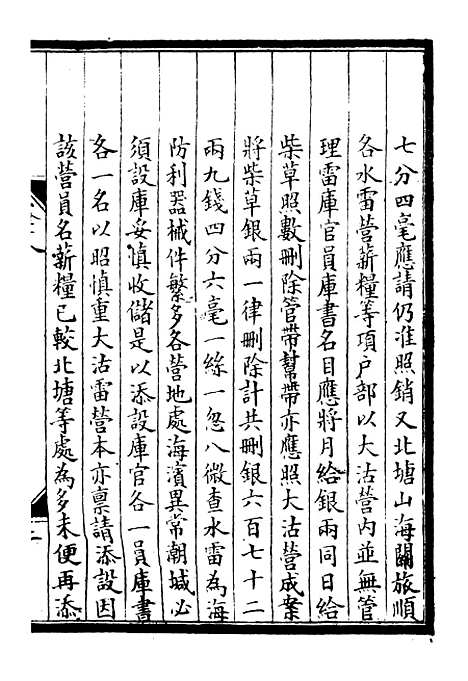 七分四毫應請仍准照銷又北塘山海關旅順
各水雷營薪糧等項户部以大沽營內並無管
理雷庫官員庫書名目應將月給銀兩同日給
柴草照數刪除管帶幫帶亦應照大沽營成案
將柴草銀兩一律刪除計共刪銀六百七十二
兩九錢四分六毫一絲一忽八微查水雷為海
防利器械件繁多各營地處海濱異常潮堿必
須設庫妥慎收儲是以添設庫官各一員庫書
各一名以昭慎重大沽雷營本亦稟請添設因
該營員名薪糧已較北塘等處為多未便再添